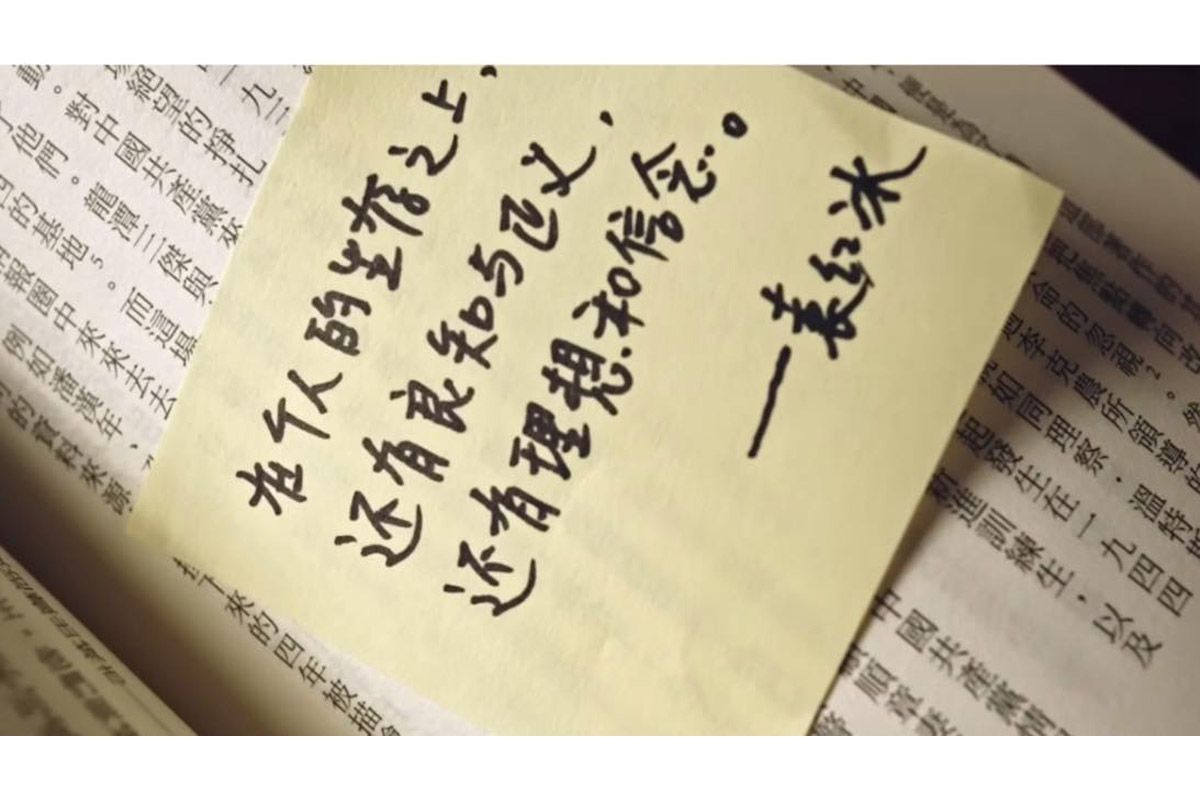 在个人的生存之上，
还有良知与正义，
还有理想和信念。
—袁红冰
一九三
絕望的掙扎
動。對中國共產黨來
他們。龍潭三傑與
的基地5。而這場
報圈中來來去去
例如潘漢年，
的資料來源
來的四年被描
命的忽視2。然
李克農所領導的
如同理察．溫特
起發生在一九四四
進訓練生，以及
中國共產黨情
順章